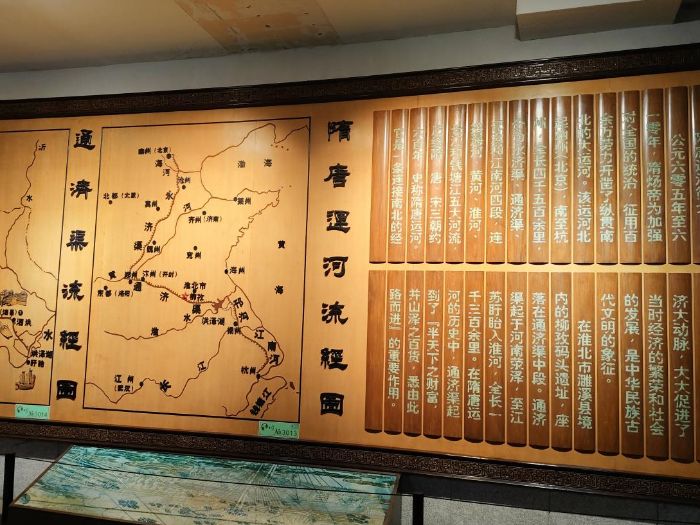 公元六零五年至六
一零年，隋炀帝为加强
对全国的统治，征用百
余万劳力开凿了纵贯南
北的大运河。该运河北
起涿郡（北京），南至杭
州，全长四千五百余里
济渠、通济渠、
江南河四段，连
黄河、淮河、
钱塘江五大河流
唐、宋三朝约
六百年，史称隋唐运河。
它是一条连接南北的经
济大动脉，大大促进了
当时经济的繁荣和社会
的发展，是中华民族古
代文明的象征。
在淮北市濉溪县境
内的柳孜码头遗址，座
落在通济渠中段。通济
渠起于河南荥泽，至江
苏盱眙入淮河，全长一
千三百余里，在隋唐运
河的历史中，通济渠起
到了『半天下之财富，
并山泽之百货，悉由此
路而进』的重要作用。
隋唐運河流經圖
幽州（北京）
海河
渤海
沧州
北都（太原）
冀州
永济渠
莱州
齐州（济南）
魏州
兖州
黄海
黄
郑州
汴州（开封）
东都（洛阳）
通济渠
淮北市
柳孜
海州
淮水
洪泽湖
邗沟
江南河
江州
长江
杭州
钱塘江
№3013
通濟渠流經圖
沂水
泗洪
洪泽湖
盱眙
水
№3014